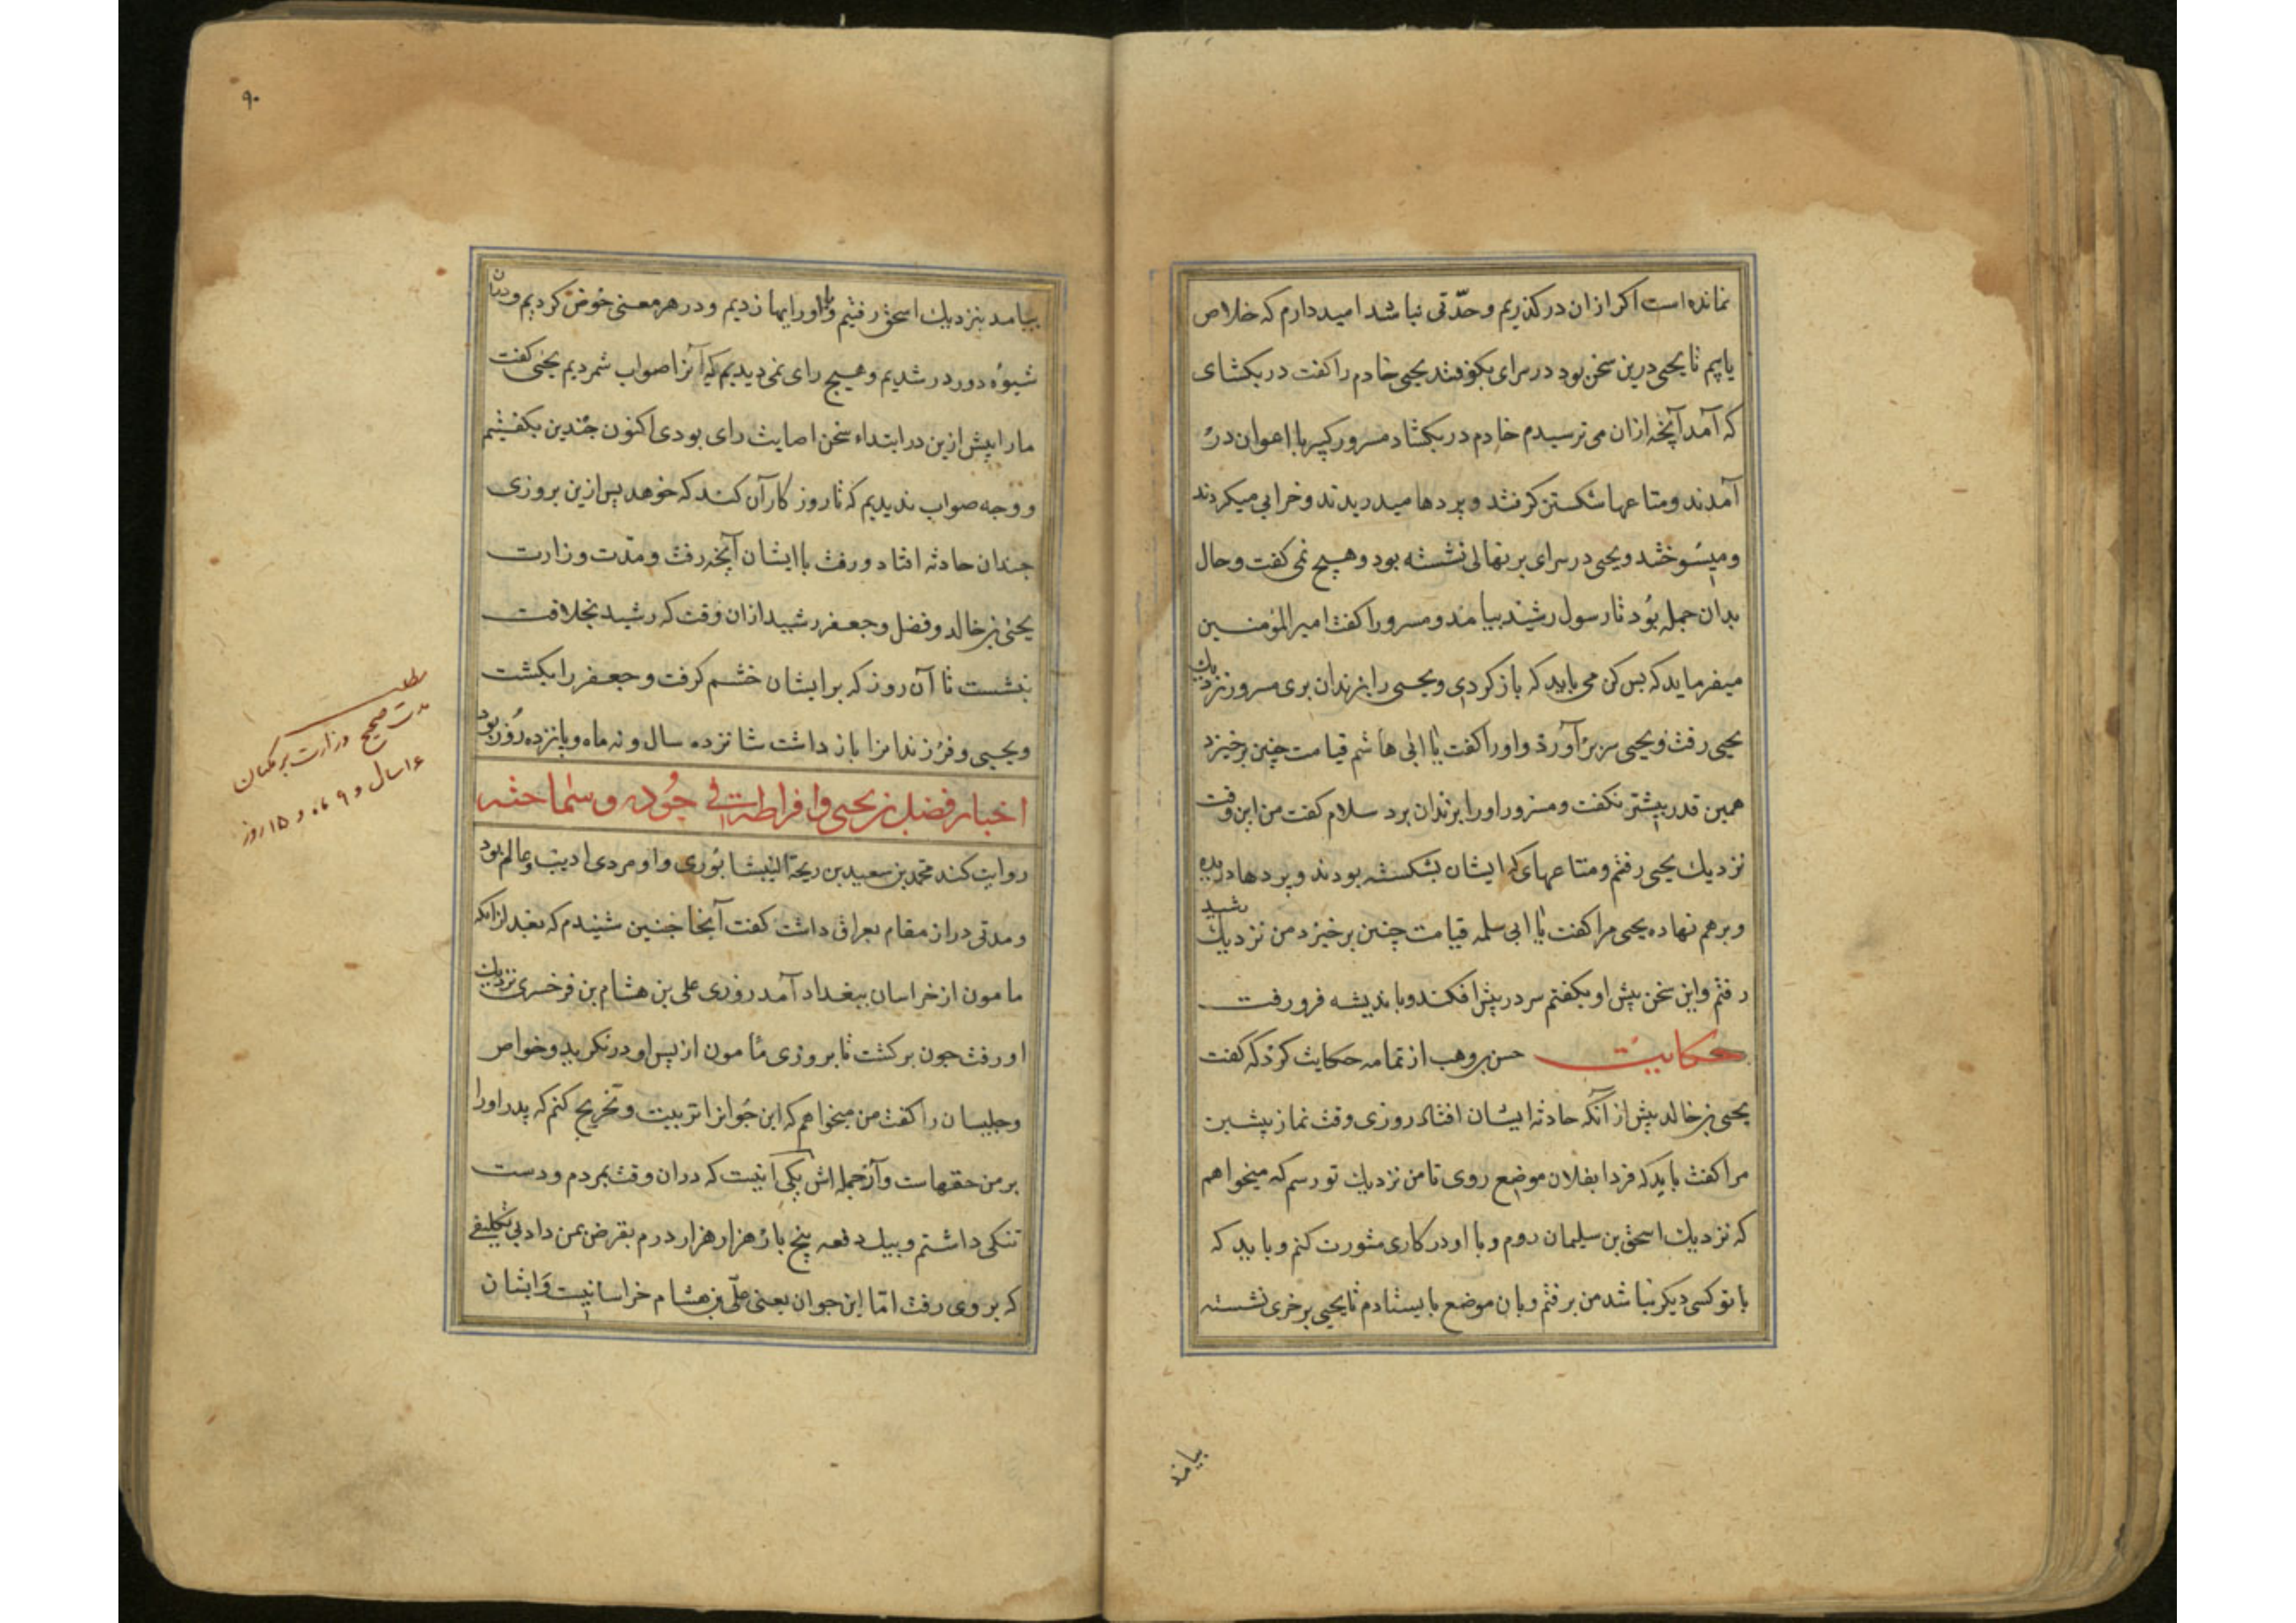 نمانده است اکر ازان درکذریم و حدّتی نباشد امید دارم که خلاص
یابیم تا یحیی درین سخن بود در سرای بکوفتند یحیی خادم را کفت در بکشای
که آمد آنچه ازان می ترسیدم خادم در بکشاد مسرور کبیر با اعوان در
آمدند و متاعها شکستن کرفتند و پردها میدریدند و خرابی میکردند
و میسوختند و یحیی در سرای بر نهالی نشسته بود و هیچ نمی کفت و حال
بدان جمله بود تا رسول رشید بیامد و مسرور را کفت امیر المؤمنین
میفرماید که بس کن می باید که باز کردی و یحیی را بزندان بری مسرور نزدیك
یحیی رفت و یحیی سر بر آورد و او را کفت یا ابی هاشم قیامت چنین برخیزد
همین قدر بیشتر نکفت و مسرور او را بزندان برد سلام کفت من این وقت
نزدیك یحیی رفتم و متاعهای که ایشان بشکسته بودند و پردها دریده
و برهم نهاده یحیی مرا کفت یا ابی سلمه قیامت چنین برخیزد من نزدیك رشید
رفتم و این سخن پیش او بکفتم سر در پیش افکند و باندیشه فرو رفت
حکایت حسن بن وهب از تمامه حکایت کرد که کفت
یحیی بن خالد پیش از آنکه حادثه ایشان افتاد روزی وقت نماز پیشین
مرا کفت باید که فردا بفلان موضع روی تا من نزدیك تو رسم که میخواهم
که نزدیك اسحق بن سلیمان روم و با او در کاری مشورت کنم و باید که
با تو کسی دیکر نباشد من برفتم و بان موضع بایستادم تا یحیی بر خری نشسته
بیامد
۹۰
بیامد بنزدیك اسحق رفتیم و با او رایها زدیم و در هر معنی خوض کردیم و دران
شیوه دور در شدیم و هیچ رای نمی دیدیم که آنرا صواب شمردیم یحیی کفت
ما را پیش ازین در ابتداء سخن اصابت رای بودی اکنون چندین بکفتیم
و وجه صواب ندیدیم که تا روز کار آن کند که خوهد پس ازین بروزی
چندان حادثه افتاد و رفت با ایشان آنچه رفت و مدّت وزارت
یحیی بن خالد و فضل و جعفر رشید ازان وقت که رشید بخلافت
بنشست تا آن روز که بر ایشان خشم کرفت و جعفر را بکشت
و یحیی و فرزندانرا باز داشت شانزده سال و نه ماه و پانزده روز بود
مطلب
مدت صحیح وزارت برمکیان
۱۶ سال و ۹ ماه و ۱۵ روز
اخبار فضل بن یحیی و افراطه فی جوده و سماحته
روایت کند محمد بن سعید بن ریحة النیشابوری و او مردی ادیب و عالم بود
و مدتی دراز مقام بعراق داشت کفت آنجا چنین شنیدم که بعد ازانکه
مامون از خراسان ببغداد آمد روزی علی بن هشام بن فرخسری نزدیك
او رفت چون برکشت تا بروزی مأمون از پس او درنکرید و خواص
و جلیسان را کفت من میخواهم که این جوانرا تربیت و تخریج کنم که پدر او را
بر من حقهاست و آز جمله اش یکی آنیست که دران وقت بمردم و دست
تنکی داشتم و بیك دفعه پنج بار هزار هزار درم بقرض بمن داد بی تکلیفی
که بر وی رفت امّا این جوان یعنی علی بن هشام خراسانیست و ایشان